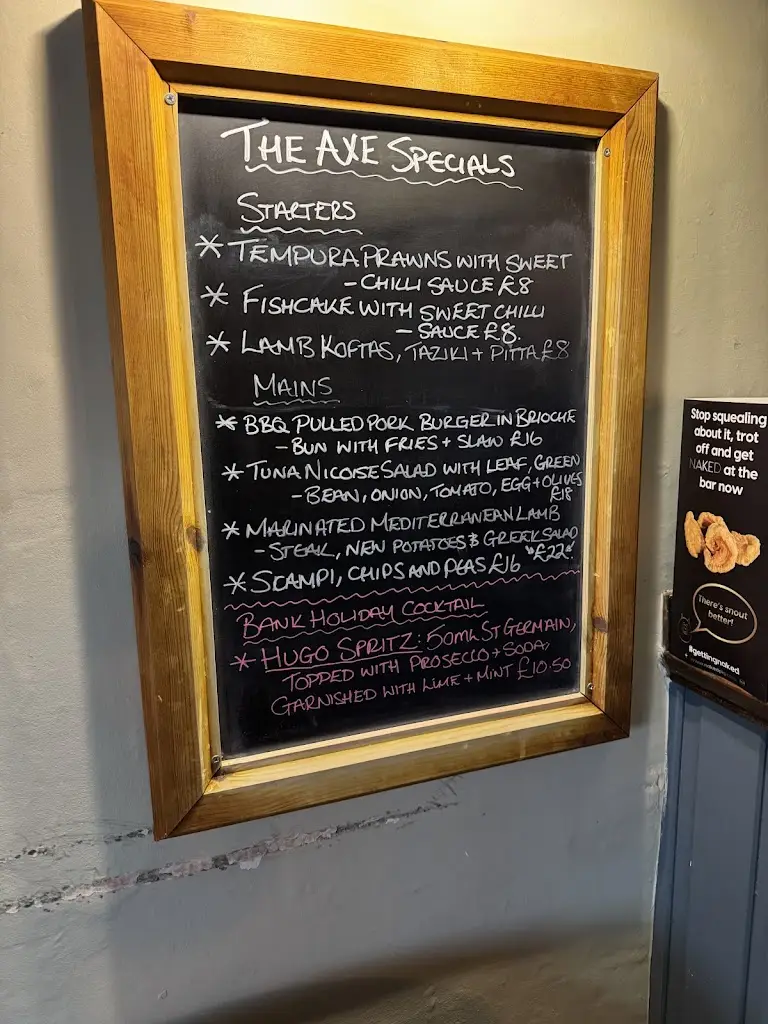 THE AXE SPECIALS
STARTERS
* TEMPURA PRAWNS WITH SWEET
- CHILLI SAUCE £8
* FISHCAKE WITH SWEET CHILLI
- SAUCE £8.
* LAMB KOFTAS, TAZIKI + PITTA £8
MAINS
* BBQ PULLED PORK BURGER IN BRIOCHE
- BUN WITH FRIES + SLAW £16
* TUNA NICOISE SALAD WITH LEAF, GREEN
- BEAN, ONION, TOMATO, EGG + OLIVES
£18
* MARINATED MEDITERRANEAN LAMB
- STEAK, NEW POTATOES & GREEK SALAD
"£22"
* SCAMPI, CHIPS AND PEAS £16
BANK HOLIDAY COCKTAIL
* HUGO SPRITZ: 50ML ST GERMAIN,
TOPPED WITH PROSECCO + SODA,
GARNISHED WITH LIME + MINT £10.50
Stop squealing
about it, trot
off and get
NAKED at the
bar now
There's snout
better!
#gettingnaked